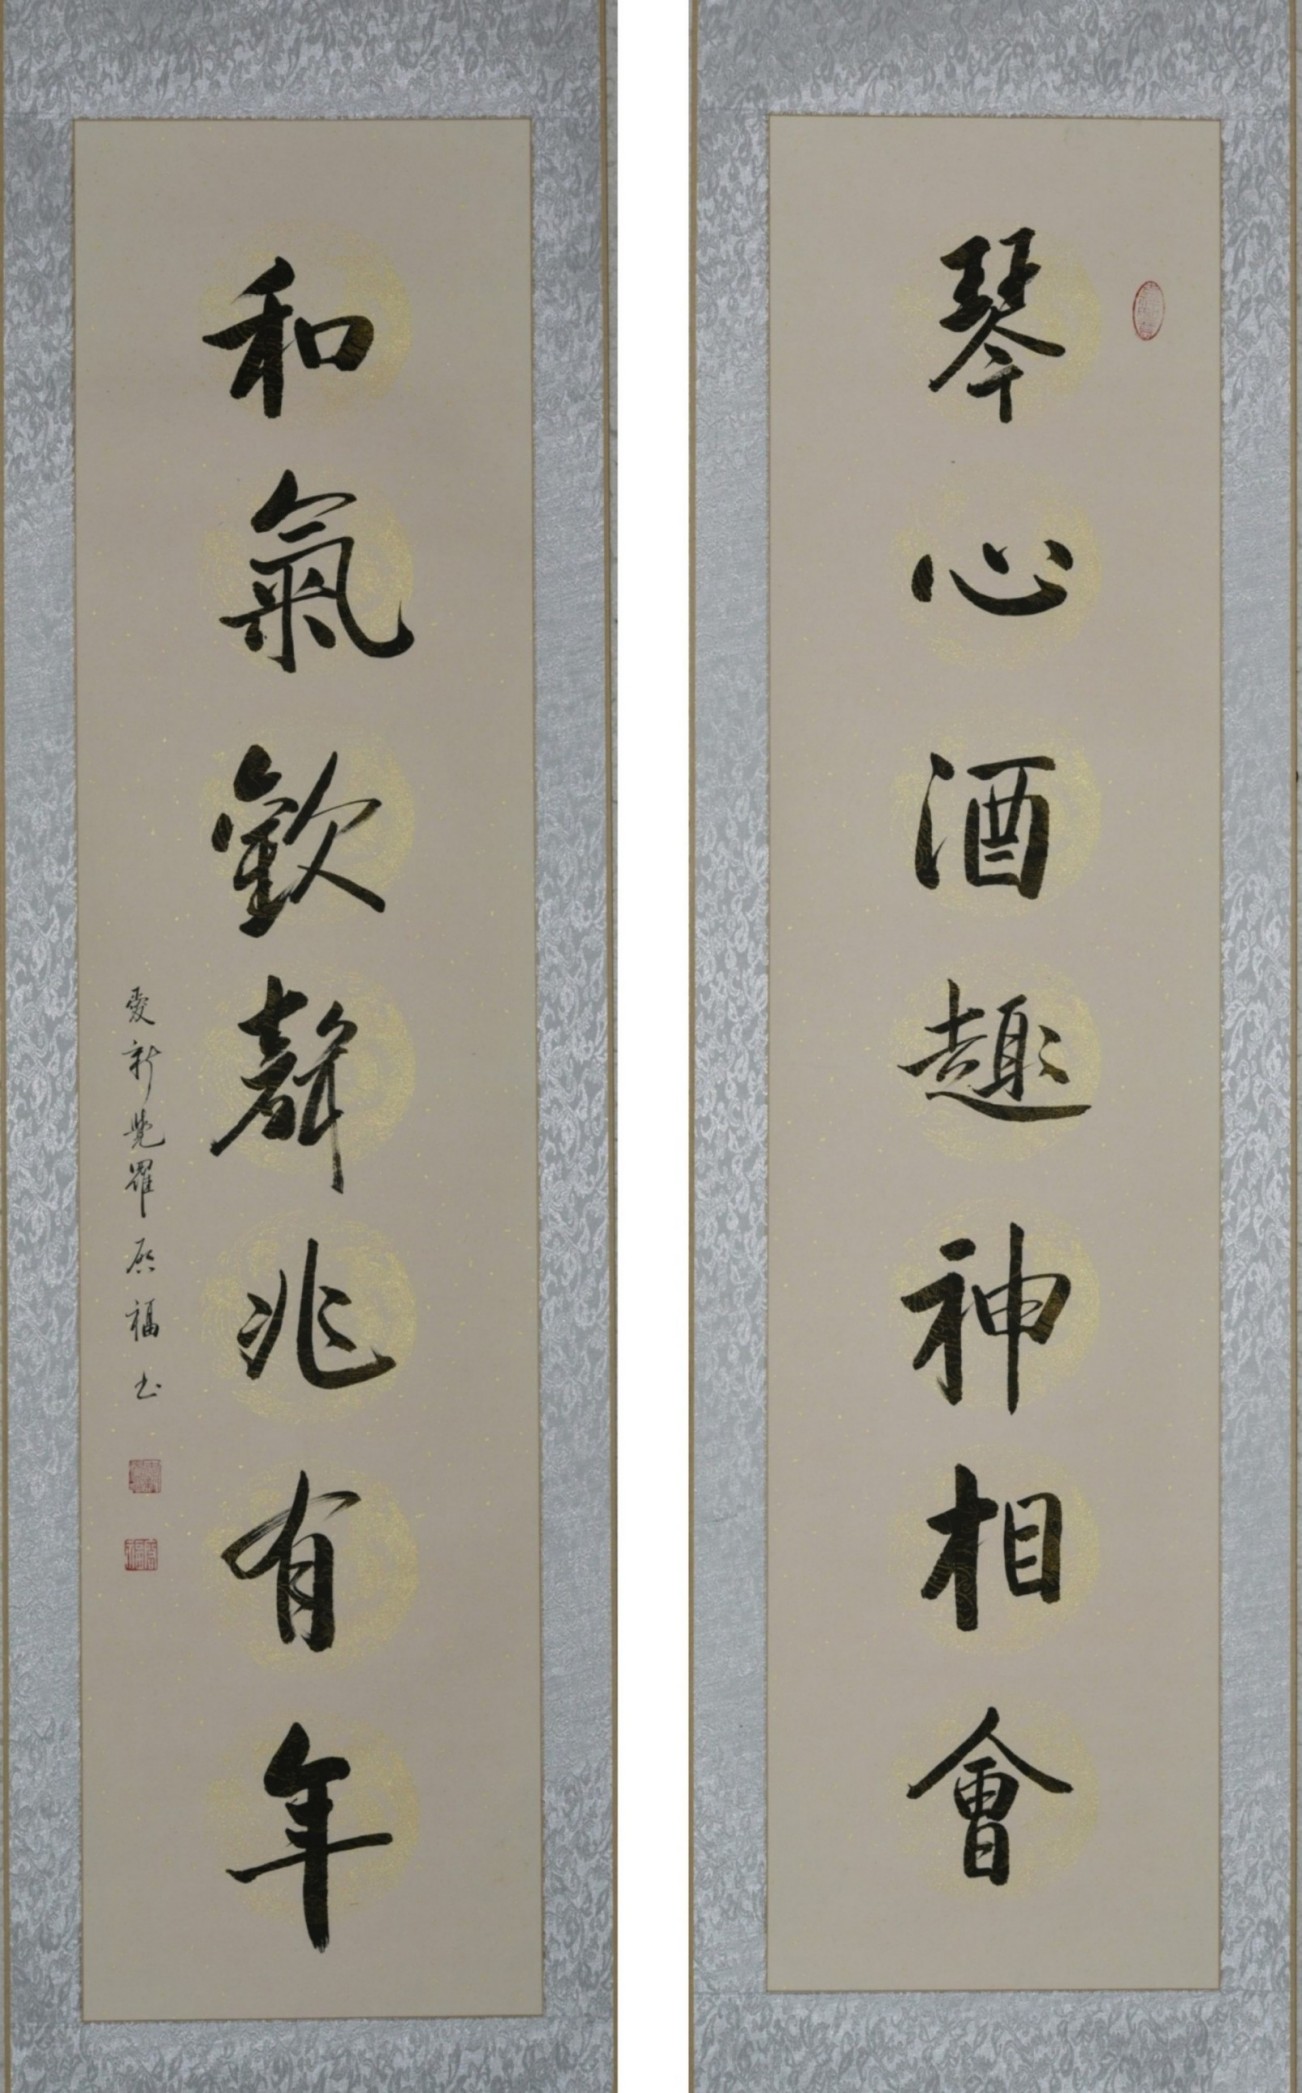 琴心酒趣神相會
和氣歡聲兆有年
愛新覺羅啟福书